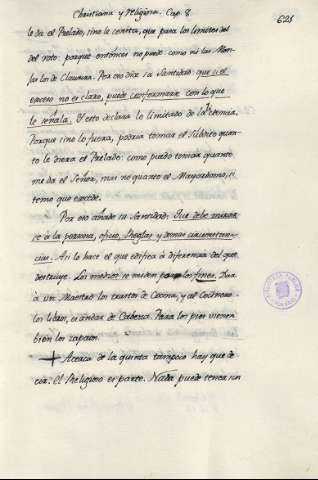 Christiana y Religiosa. Cap. 8.
621
le da el Prelado, sino le centra, que para los limites del
del voto: porque entonces no puede como ni las Mon-
jas los de Clausura. Por eso dice su Santidad: que si el
exceso no es claro, puede conformarse con lo que
le señala. Y esto declara lo limitado de la licencia.
Porque si no lo fuera, podria tomar el Subdito quan-
to le diera el Prelado: como puedo tomar quanto
me da el Señor, mas no quanto el Mayordomo, si
temo que excede.
Por eso añade su Santidad: Que debe mirar-
se à la persona, oficio, Reglas y demas circunstan-
cias. Asi lo hace el que edifica à diferencia del que
destruye. Los medios se miden por los fines. Para
à un Maestro los trastos de Cocina, y al Cocinero
los libros, es andar de Cabeza. Para los pies vienen
bien los zapatos.
Acerca de la quinta tampoco hay que de-
cir. El Religioso es parte. Nada puede tener sin